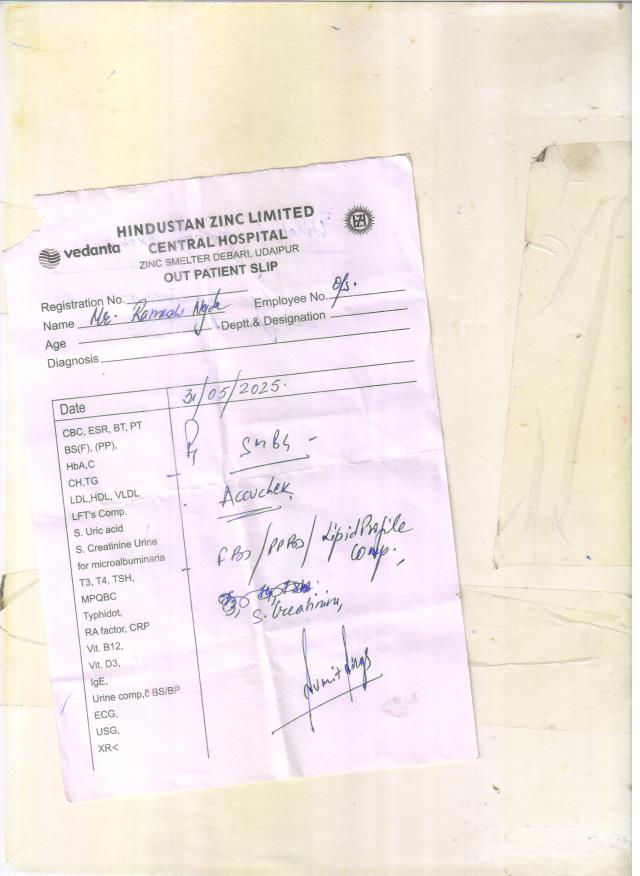 HINDUSTAN ZINC LIMITED
vedanta CENTRAL HOSPITAL
ZINC SMELTER DEBARI, UDAIPUR
OUT PATIENT SLIP
Registration No.
Employee No. o/s.
Name Mr. Ramesh
Deptt.& Designation
Age
Diagnosis
Date 31/05/2025.
CBC, ESR, BT, PT
BS(F), (PP),
HbA,C
CH,TG
LDL,HDL, VLDL
LFT's Comp.
S. Uric acid
S. Creatinine Urine
for microalbuminaria
T3, T4, TSH,
MPQBC
Typhidot,
RA factor, CRP
Vit. B12,
Vit. D3,
IgE,
Urine comp,c̄ BS/BP
ECG,
USG,
XR<
SMBG -
Accuchek
FBS / PPBS / Lipid Profile
Comp.
S. Creatinine,